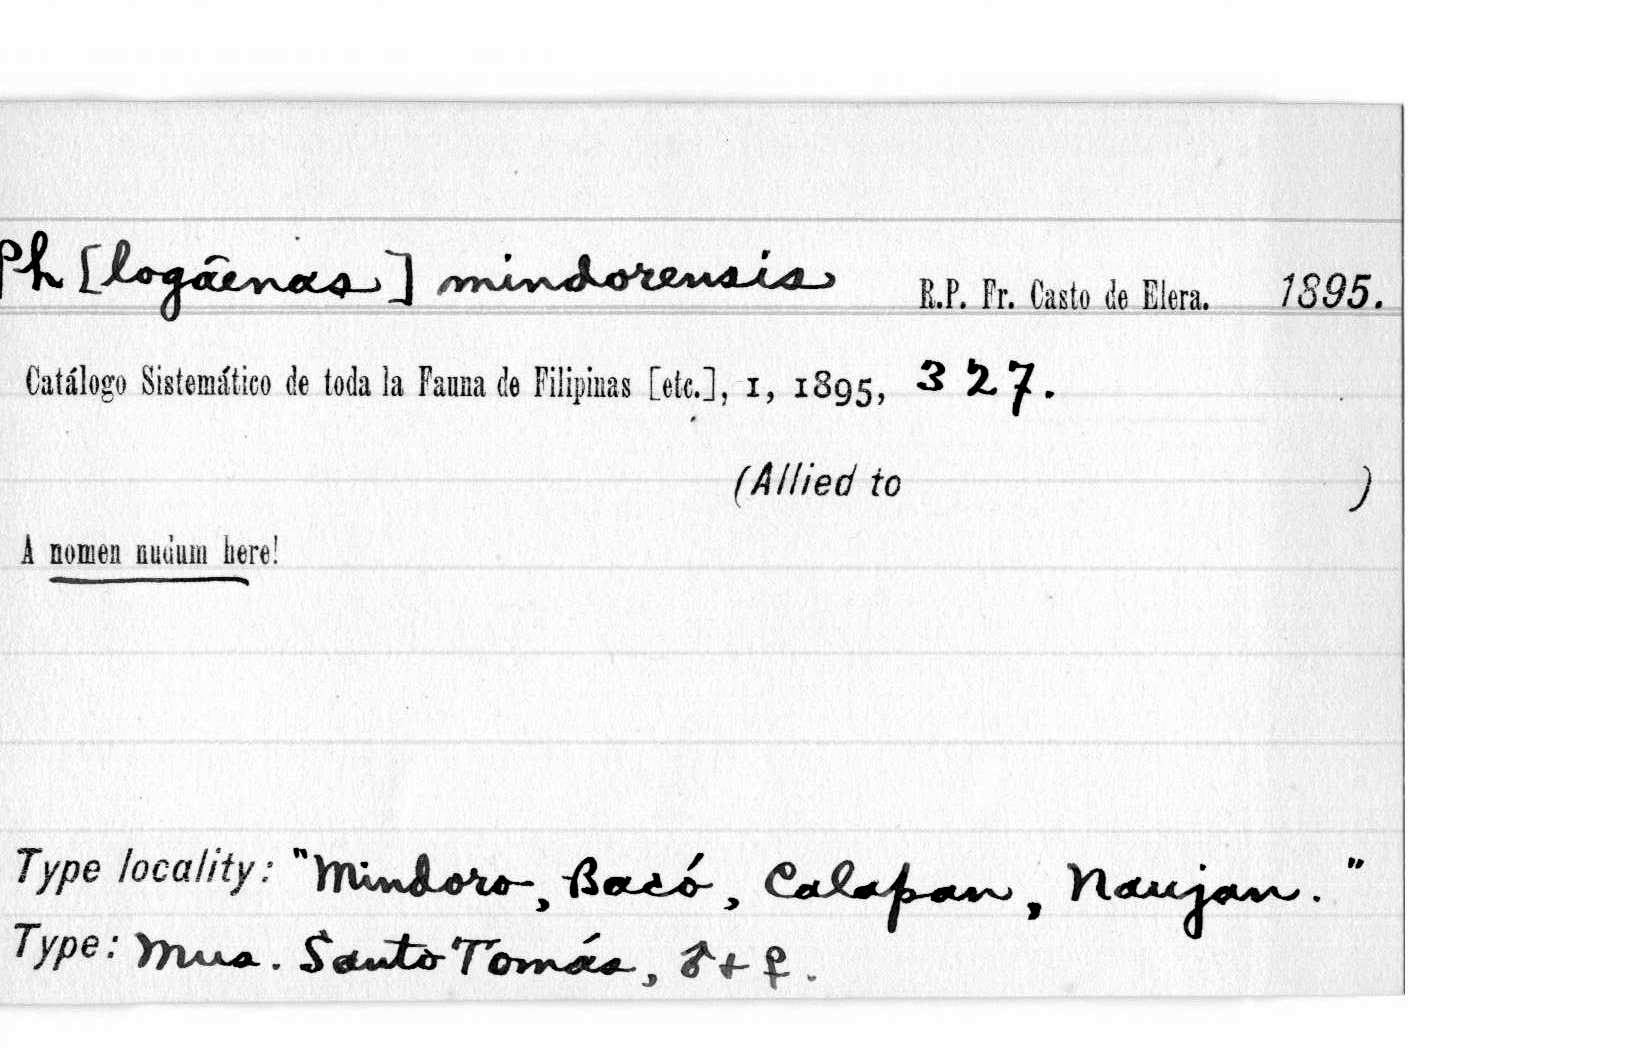 Ph [logaenas] mindorensis R.P. Fr. Casto de Elera. 1895.
Catálogo Sistemático de toda la Fauna de Filipinas [etc.], I, 1895, 327.
(Allied to )
A nomen nudum here!
Type locality: "Mindoro, Bacó, Calapan, Naujan."
Type: Mus. Santo Tomás, ♂ + ♀.